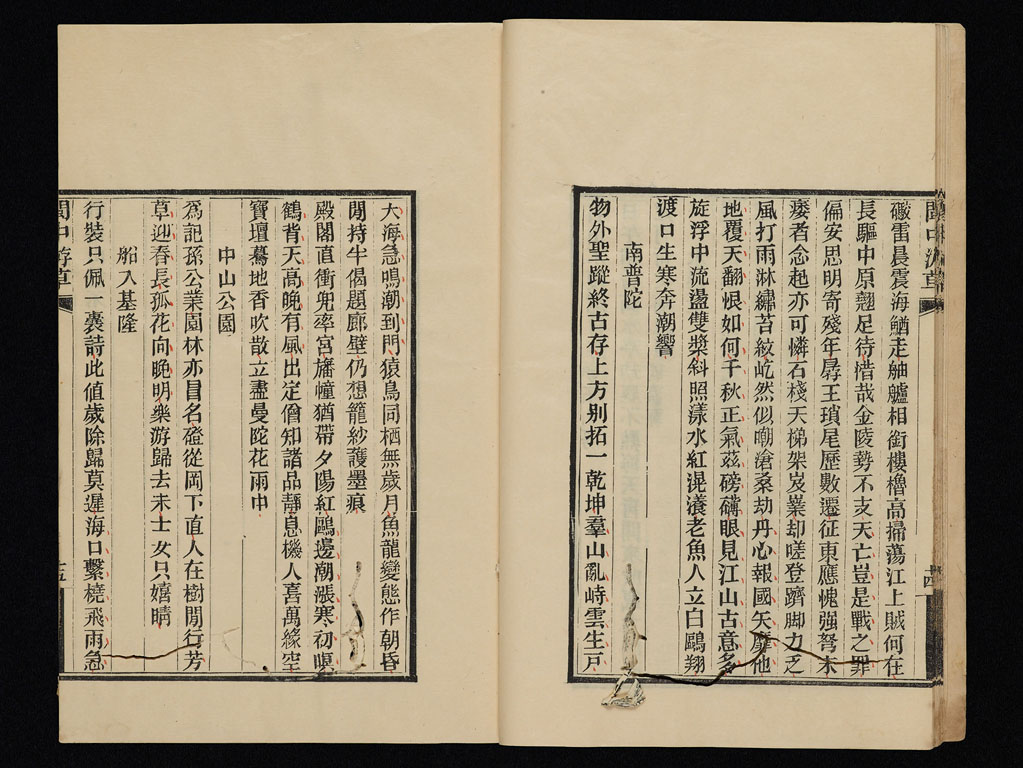 閩中游草
十四
礮雷晨震海鰌走舳艫相銜樓櫓高掃蕩江上賊何在
長驅中原翹足待惜哉金陵勢不支天亡豈是戰之罪
偏安思明寄殘年孱王瑣尾歷數遷征東應愧强弩末
痿者念起亦可憐石棧天梯架岌業却嗟登躋脚力乏
風打雨淋繡苔紋屹然似嘲滄桑劫丹心報國矢靡他
地覆天翻恨如何千秋正氣茲磅礴眼見江山古意多
旋浮中流盪雙槳斜照漾水紅滉瀁老魚人立白鷗翔
渡口生寒奔潮響
南普陀
物外聖蹤終古存上方别拓一乾坤羣山亂峙雲生戶
大海急鳴潮到門猿鳥同栖無歲月魚龍變態作朝昏
閒持半偈題廊壁仍想籠紗護墨痕
殿閣直衝兜率宮旛幢猶帶夕陽紅鷗邊潮漲寒初嗅
鶴背天高晚有風出定僧知諸品靜息機人喜萬緣空
寶壇驀地香吹散立盡曼陀花雨中
中山公園
爲記孫公業園林亦冒名磴從岡下直人在樹間行芳
草迎春長孤花向晚明樂游歸去未士女只嬉晴
船入基隆
行裝只佩一囊詩此値歲除歸莫遲海口繫橈飛雨急
閩中游草
十五